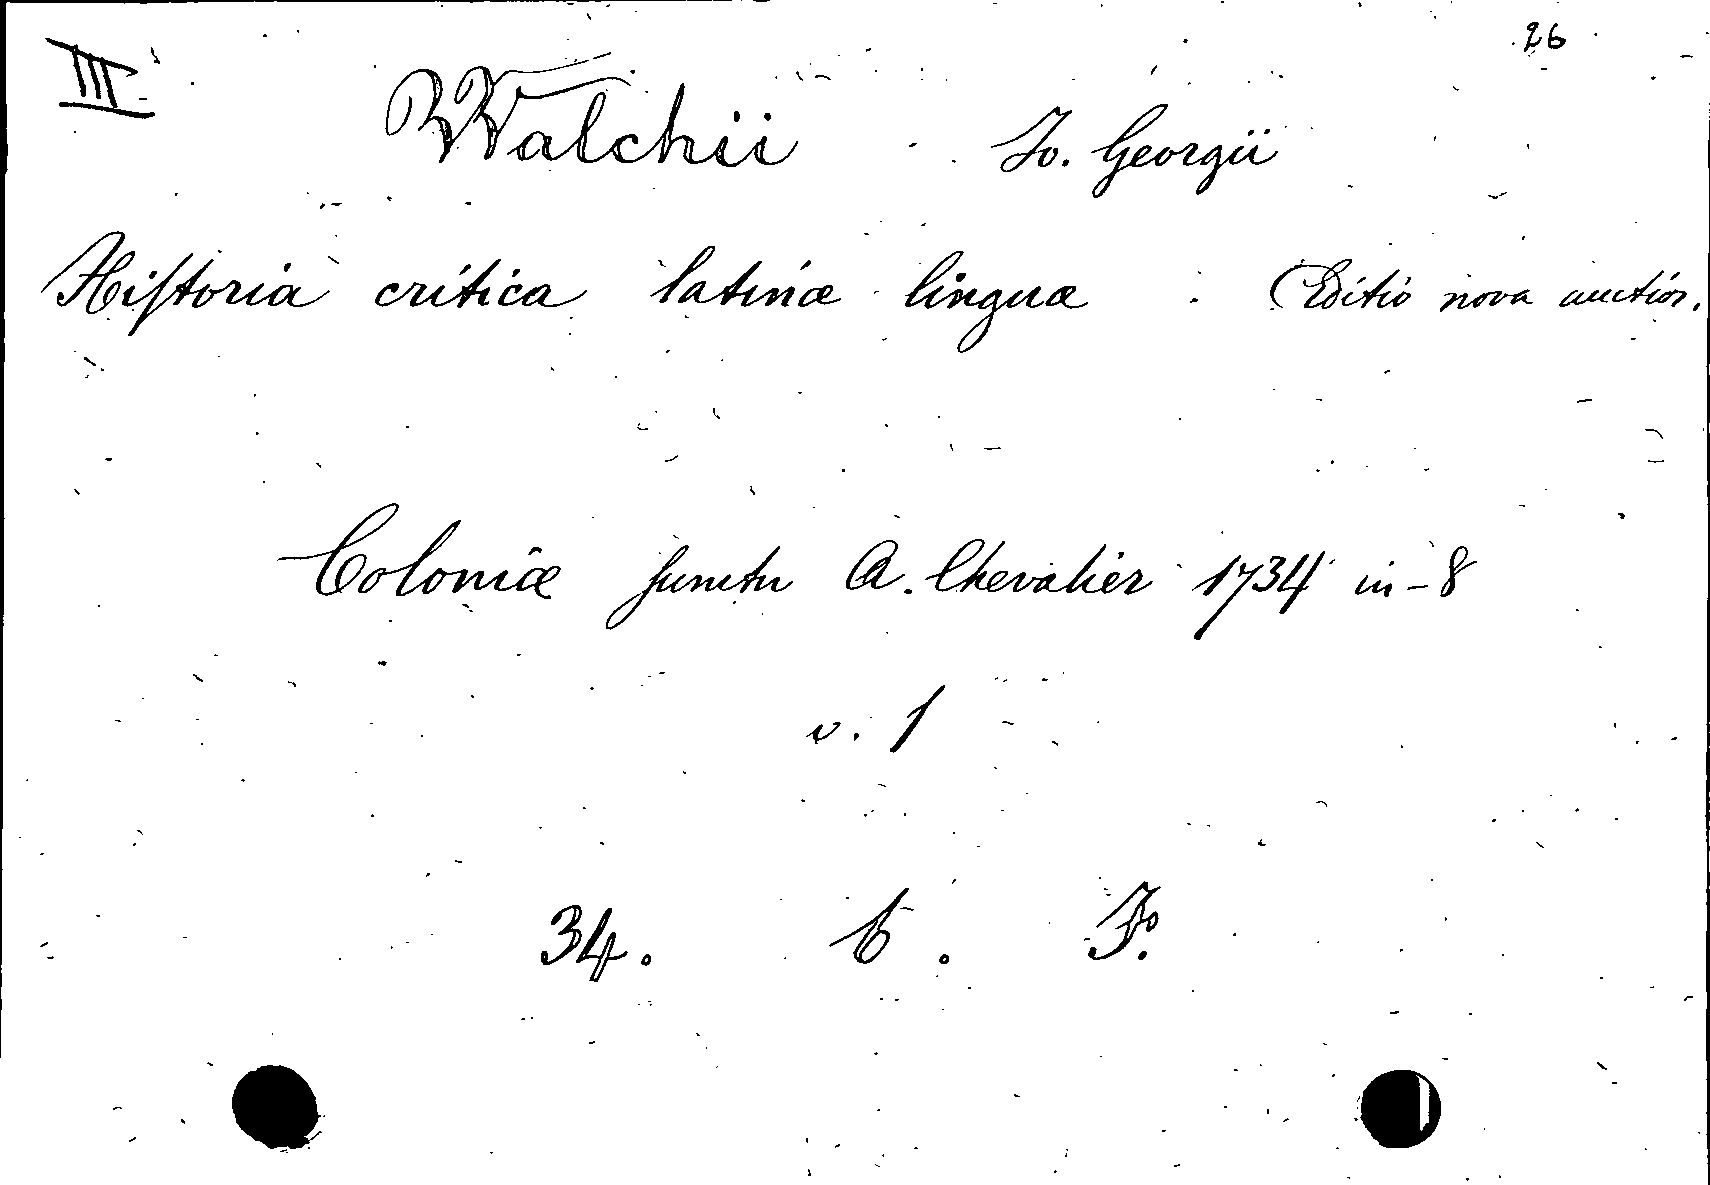 III 26
Walchii Jo. Georgii
Historia critica latinæ linguæ. Editio nova auctior.
Coloniæ sumtu A. Chevalier 1734 in-8
v. 1
34. F.